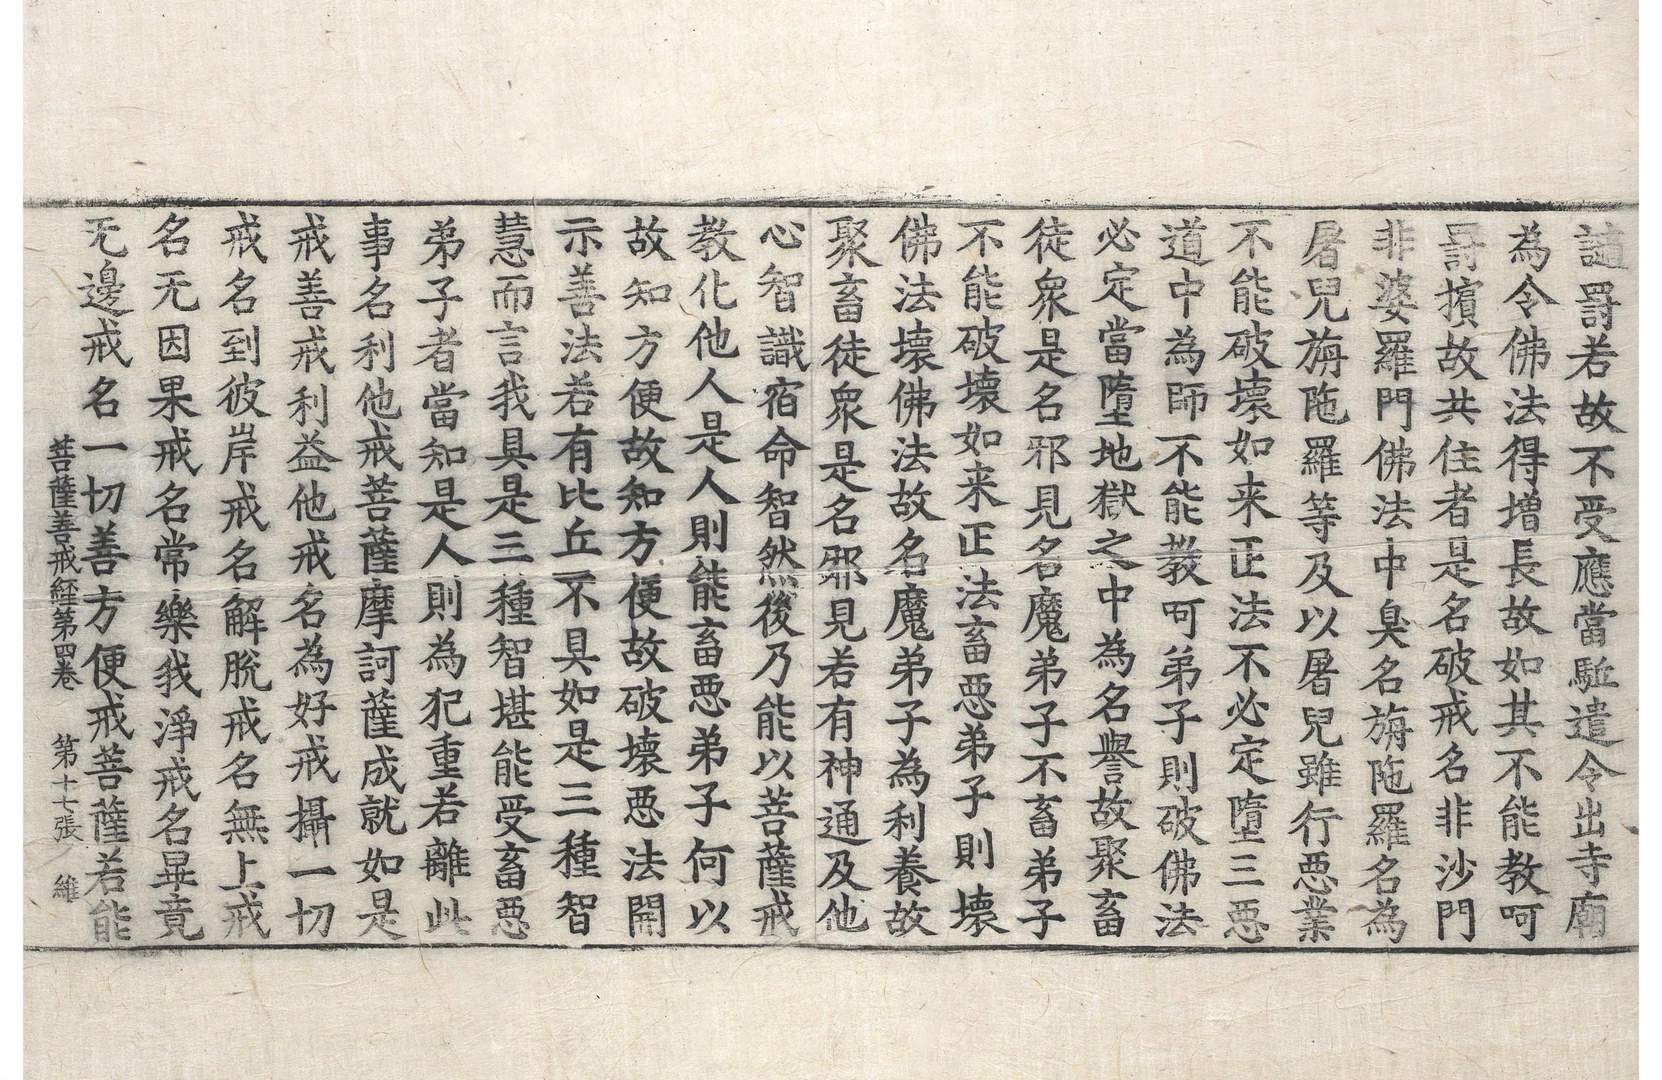 謫罸若故不受應當駈遣令出寺廟
為令佛法得增長故如其不能教呵
罸擯故共住者是名破戒名非沙門
非婆羅門佛法中臭名旃陁羅名為
屠兒旃陁羅等及以屠兒雖行惡業
不能破壞如来正法不必定墮三惡
道中為師不能教呵弟子則破佛法
必定當墮地獄之中為名譽故聚畜
徒衆是名邪見名魔弟子不畜弟子
不能破壞如来正法畜惡弟子則壞
佛法壞佛法故名魔弟子為利養故
聚畜徒衆是名邪見若有神通及他
心智識宿命智然後乃能以菩薩戒
教化他人是人則能畜惡弟子何以
故知方便故知方便故破壞惡法開
示善法若有比丘不具如是三種智
慧而言我具是三種智堪能受畜惡
弟子者當知是人則為犯重若離此
事名利他戒菩薩摩訶薩成就如是
戒善戒利益他戒名為好戒攝一切
戒名到彼岸戒名解脫戒名無上戒
名无因果戒名常樂我淨戒名畢竟
无邊戒名一切善方便戒菩薩若能
菩薩善戒經第四卷　第十七張　維